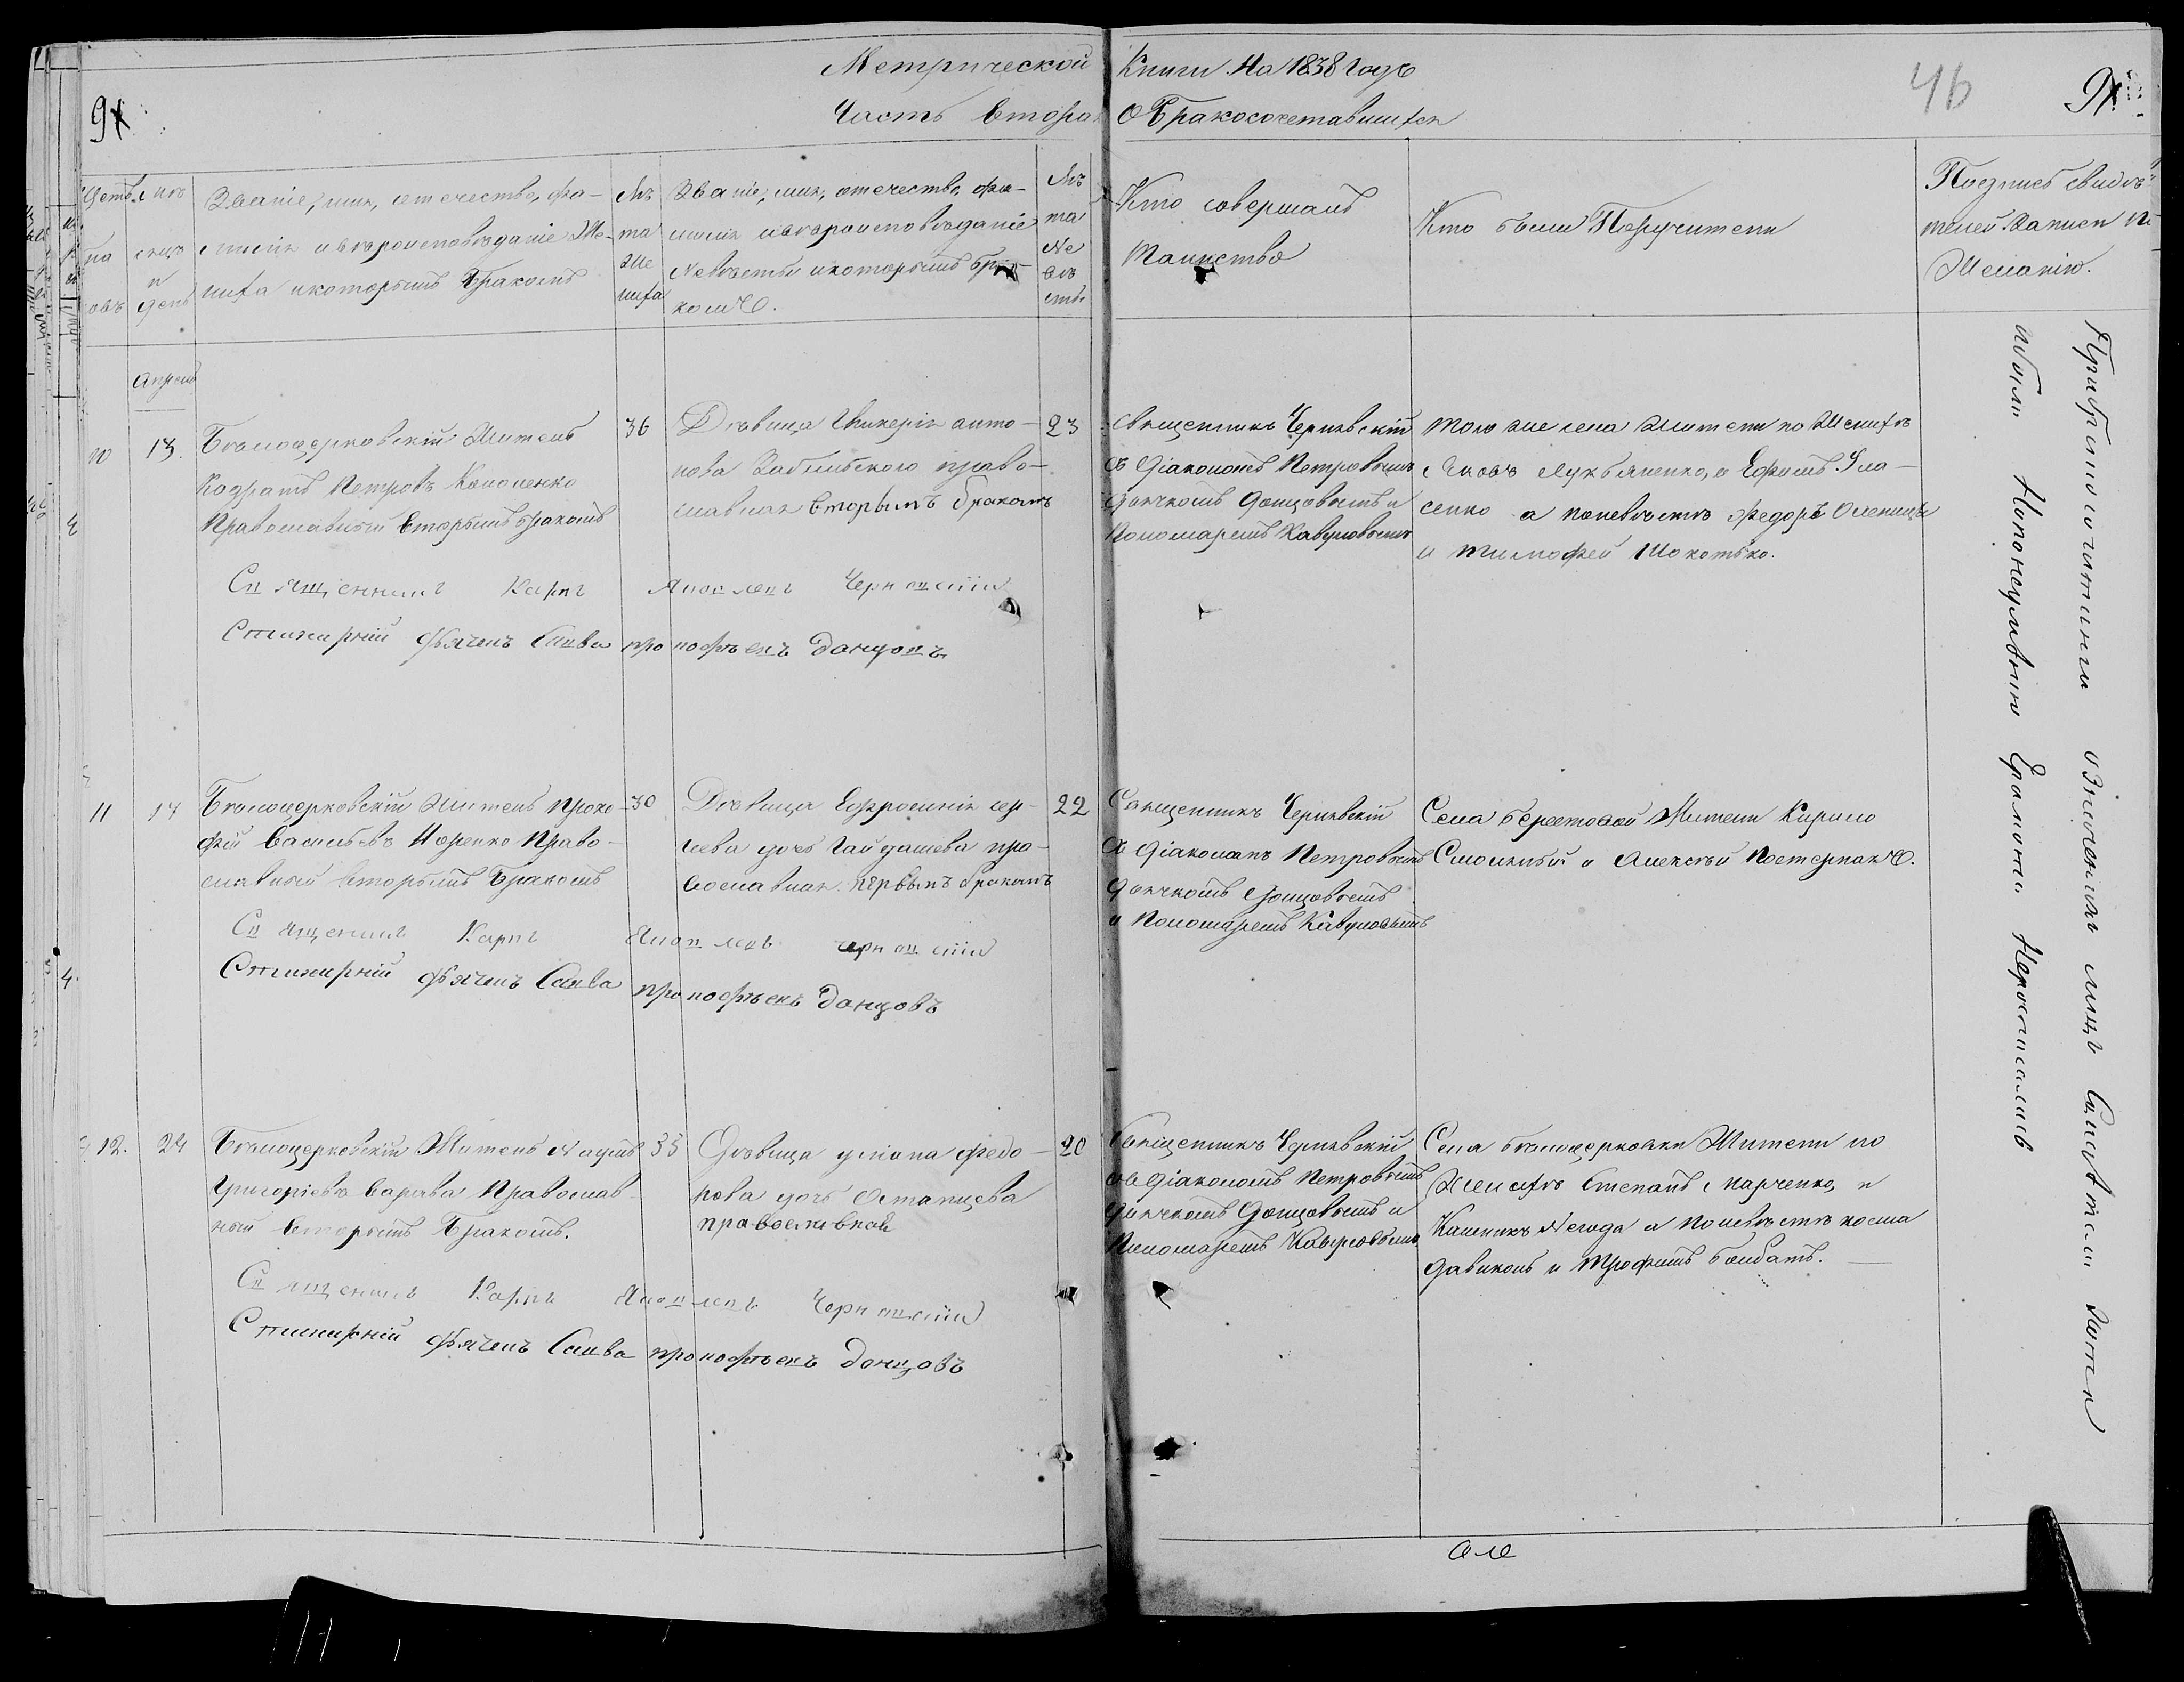 Метрической Книги На 1838 Годъ
Часть Вторая О Бракосочетавшихся
46
Счетъ браковъ
Мѣсяцъ и день
Званіе, имя, отечество, фа-
милія и вѣроисповѣданіе Же-
ниха и которымъ бракомъ
Лѣта Жениха
Званіе, имя, отечество, фа-
милія и вѣроисповѣданіе
Невѣсты и которымъ бра-
комъ.
Лѣта Невѣсты
Кто совершалъ
Таинство
Кто были Поручители
Подпись свидѣ-
телей Записи по
Желанію.
Апрель
10
13.
Бѣлоцерковскій Житель
Кодратъ Петровъ Кононенко
Православный вторымъ бракомъ
36
Дѣвица Гликерія анто-
нова Забильского право-
славная вторымъ бракомъ
23
священникъ Чернявскій
съ Діакономъ Петровымъ
дьячкомъ Донцовымъ и
Пономаремъ Кавуновымъ
того же села жители по Женихѣ
Яковъ Лукьяненко, и Ефимъ
сенко а поневѣстѣ Федоръ Олешицъ
и тимофей Шокотько.
Священникъ Карпъ Яковлевъ Чернявскій
Стихарній Дьячекъ Савва прокофьевъ Донцовъ
11
14
Бѣлоцерковскій Житель Проко-
фій Васильевъ Норенко Право-
славный вторымъ Бракомъ
30
Дѣвица Ефросинія сер-
гіева дочь Гайдашева пра-
вославная. первымъ бракомъ
22
Священникъ Чернявскій
съ Діакономъ Петровымъ
дьячкомъ Донцовымъ
и Пономаремъ Кавуновымъ
Села берестовой Жители Кирило
Смолный и Алексѣй Постернакъ.
Священникъ Карпъ Яковлевъ чернявскій
Стихарній Дьячекъ Савва прокофьевъ Донцовъ
12.
24
Бѣлоцерковскій Житель Наумъ
Григоріевъ Варава Православ-
ный вторымъ Бракомъ.
35
Дѣвица уліана Федо-
рова дочь Остапцева
православной
20
Священникъ Чернявскій
съ Діакономъ Петровымъ
дьячкомъ Донцовымъ и
Пономаремъ Кавуновымъ
Села бѣлоцерковки Жители по
Женихѣ Степанъ Марченко, и
Калникъ Негода а поневѣстѣ косма
давиконь и Трофимъ болбатъ.
Священникъ Карпъ Яковлевъ Чернявскій
Стихарній Дьячекъ Савва прокофьевъ Донцовъ
При бракосочитаніи означеннихъ лицъ Свидѣтели
были Но понеумѣнію Грамоти Неросписались